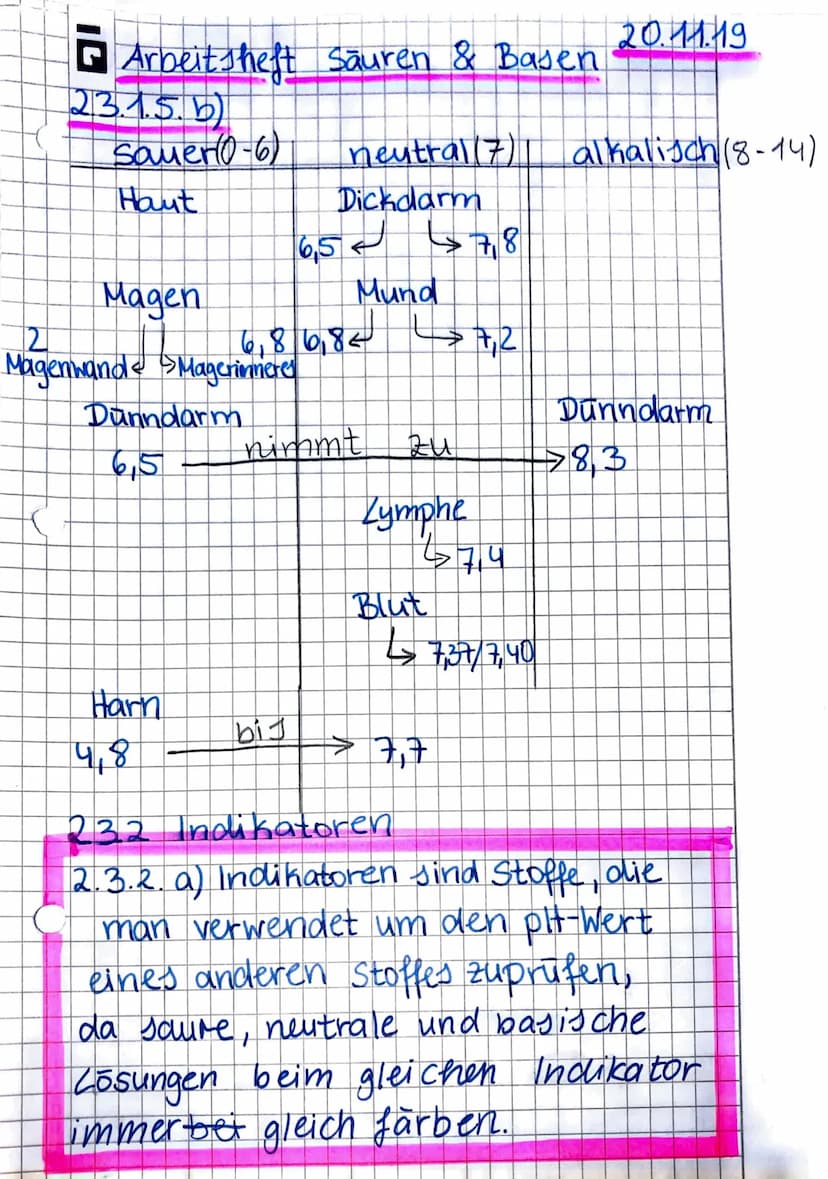 Arbeitsheft Säuren & Basen 20.11.19
2.3.1.5. b)
sauer(0-6) neutral(7) alkalisch(8-14)
Haut Dickdarm
6,5 7,8
Magen Mund
2 6,8 6,8 7,2
Magenwand Mageninneres
Dünndarm Dünndarm
6,5 nimmt zu 8,3
Lymphe
7,4
Blut
7,37/7,40
Harn
4,8 bis 7,7
2.3.2 Indikatoren
2.3.2. a) Indikatoren sind Stoffe, die
man verwendet um den pH-Wert
eines anderen Stoffes zuprüfen,
da saure, neutrale und basische
Lösungen beim gleichen Indikator
immer bei gleich färben.